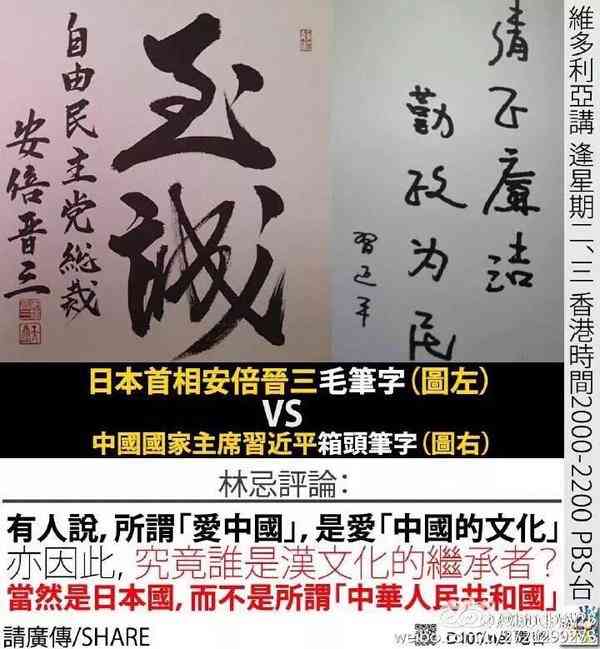 至誠
自由民主党総裁
安倍晋三
清正廉洁
勤政为民
習近平
維多利亞講 逢星期二、三 香港時間2000-2200 PBS台
日本首相安倍晉三毛筆字(圖左)
VS
中國國家主席習近平箱頭筆字(圖右)
林忌評論：
有人說, 所謂「愛中國」, 是愛「中國的文化」
亦因此, 究竟誰是漢文化的繼承者?
當然是日本國, 而不是所謂「中華人民共和國」
請廣傳/SHARE